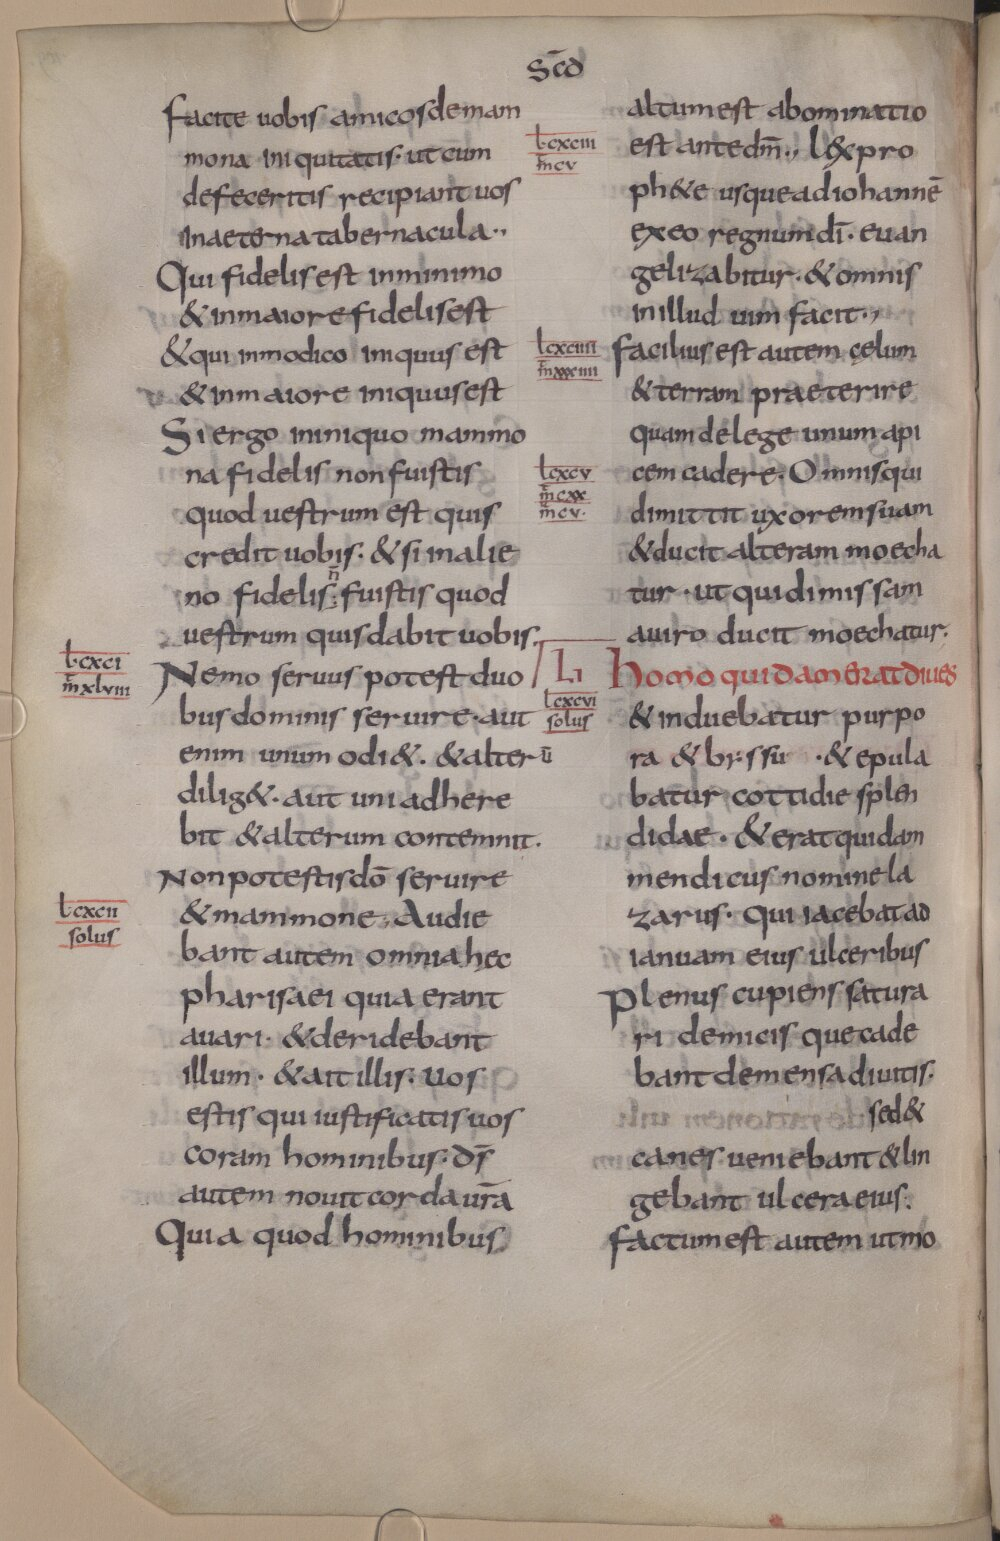 Scd̄
facite uobis amicos de mam
mona iniquitatis· ut cum
defeceritis recipiant uos
in aeterna tabernacula··
Qui fidelis est in minimo
& in maiore fidelis est
& qui in modico iniquus est
& in maiore iniquus est
Si ergo in iniquo mammo
na fidelis non fuistis
quod uestrum est quis
credit uobis· & si in alie
n̄
no fidelis fuistis quod
uestrum quis dabit uobis.
l·cxci
m̄ xlviii
Nemo seruus potest duo
bus dominis seruire· aut
enim unum odi&· & alterū
dilig&· aut uni adhere
bit & alterum contemnit.
Non potestis dō seruire
l·cxcii
solus
& mammone, Audie
bant autem omnia hec
pharisaei quia erant
auari· & deridebant
illum· & ait illis· uos
estis qui iustificatis uos
coram hominibus· ds̄
autem nouit corda urā
Quia quod hominibus
altum est abominatio
l·cxciii
m̄ cv
est ante dm̄., L&x pro
ph&e usque ad iohannē
ex eo regnum dī· euan
gelizabitur· & omnis
in illud uim facit.,
l·cxciiii
m̄xxxiiii
facilius est autem cęlum
& terram praeterire
quam de lege unum api
l·cxcv
m̄ cxx
m̄ cv·
cem cadere· Omnis qui
dimittit uxorem suam
& ducit alteram moecha
tur· ut qui dimissam
a uiro ducit moechatur.
L
homo quidam erat diues
l·cxcvi
solus
& induebatur purpo
ra & bissu · & epula
batur cottidie splen
didae· & erat quidam
mendicus nomine la
zarus· qui iacebat ad
ianuam eius ulceribus
plenus cupiens satura
ri de micis que cade
bant de mensa diuitis·
sed &
canes ueniebant & lin
gebant ulcera eius·
factum est autem ut mo